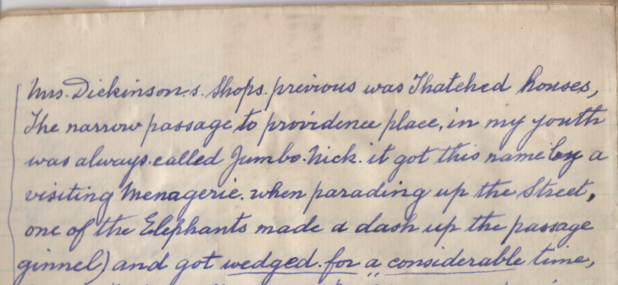 Mrs. Dickinson.s. Shops. previous was Thatched houses,
The narrow passage to providence place, in my youth
was always called Jumbo. Nick. it got this name by a
visiting Menagerie. when parading up the Street,
one of the Elephants made a dash up the passage
ginnel) and got wedged. for a considerable time,